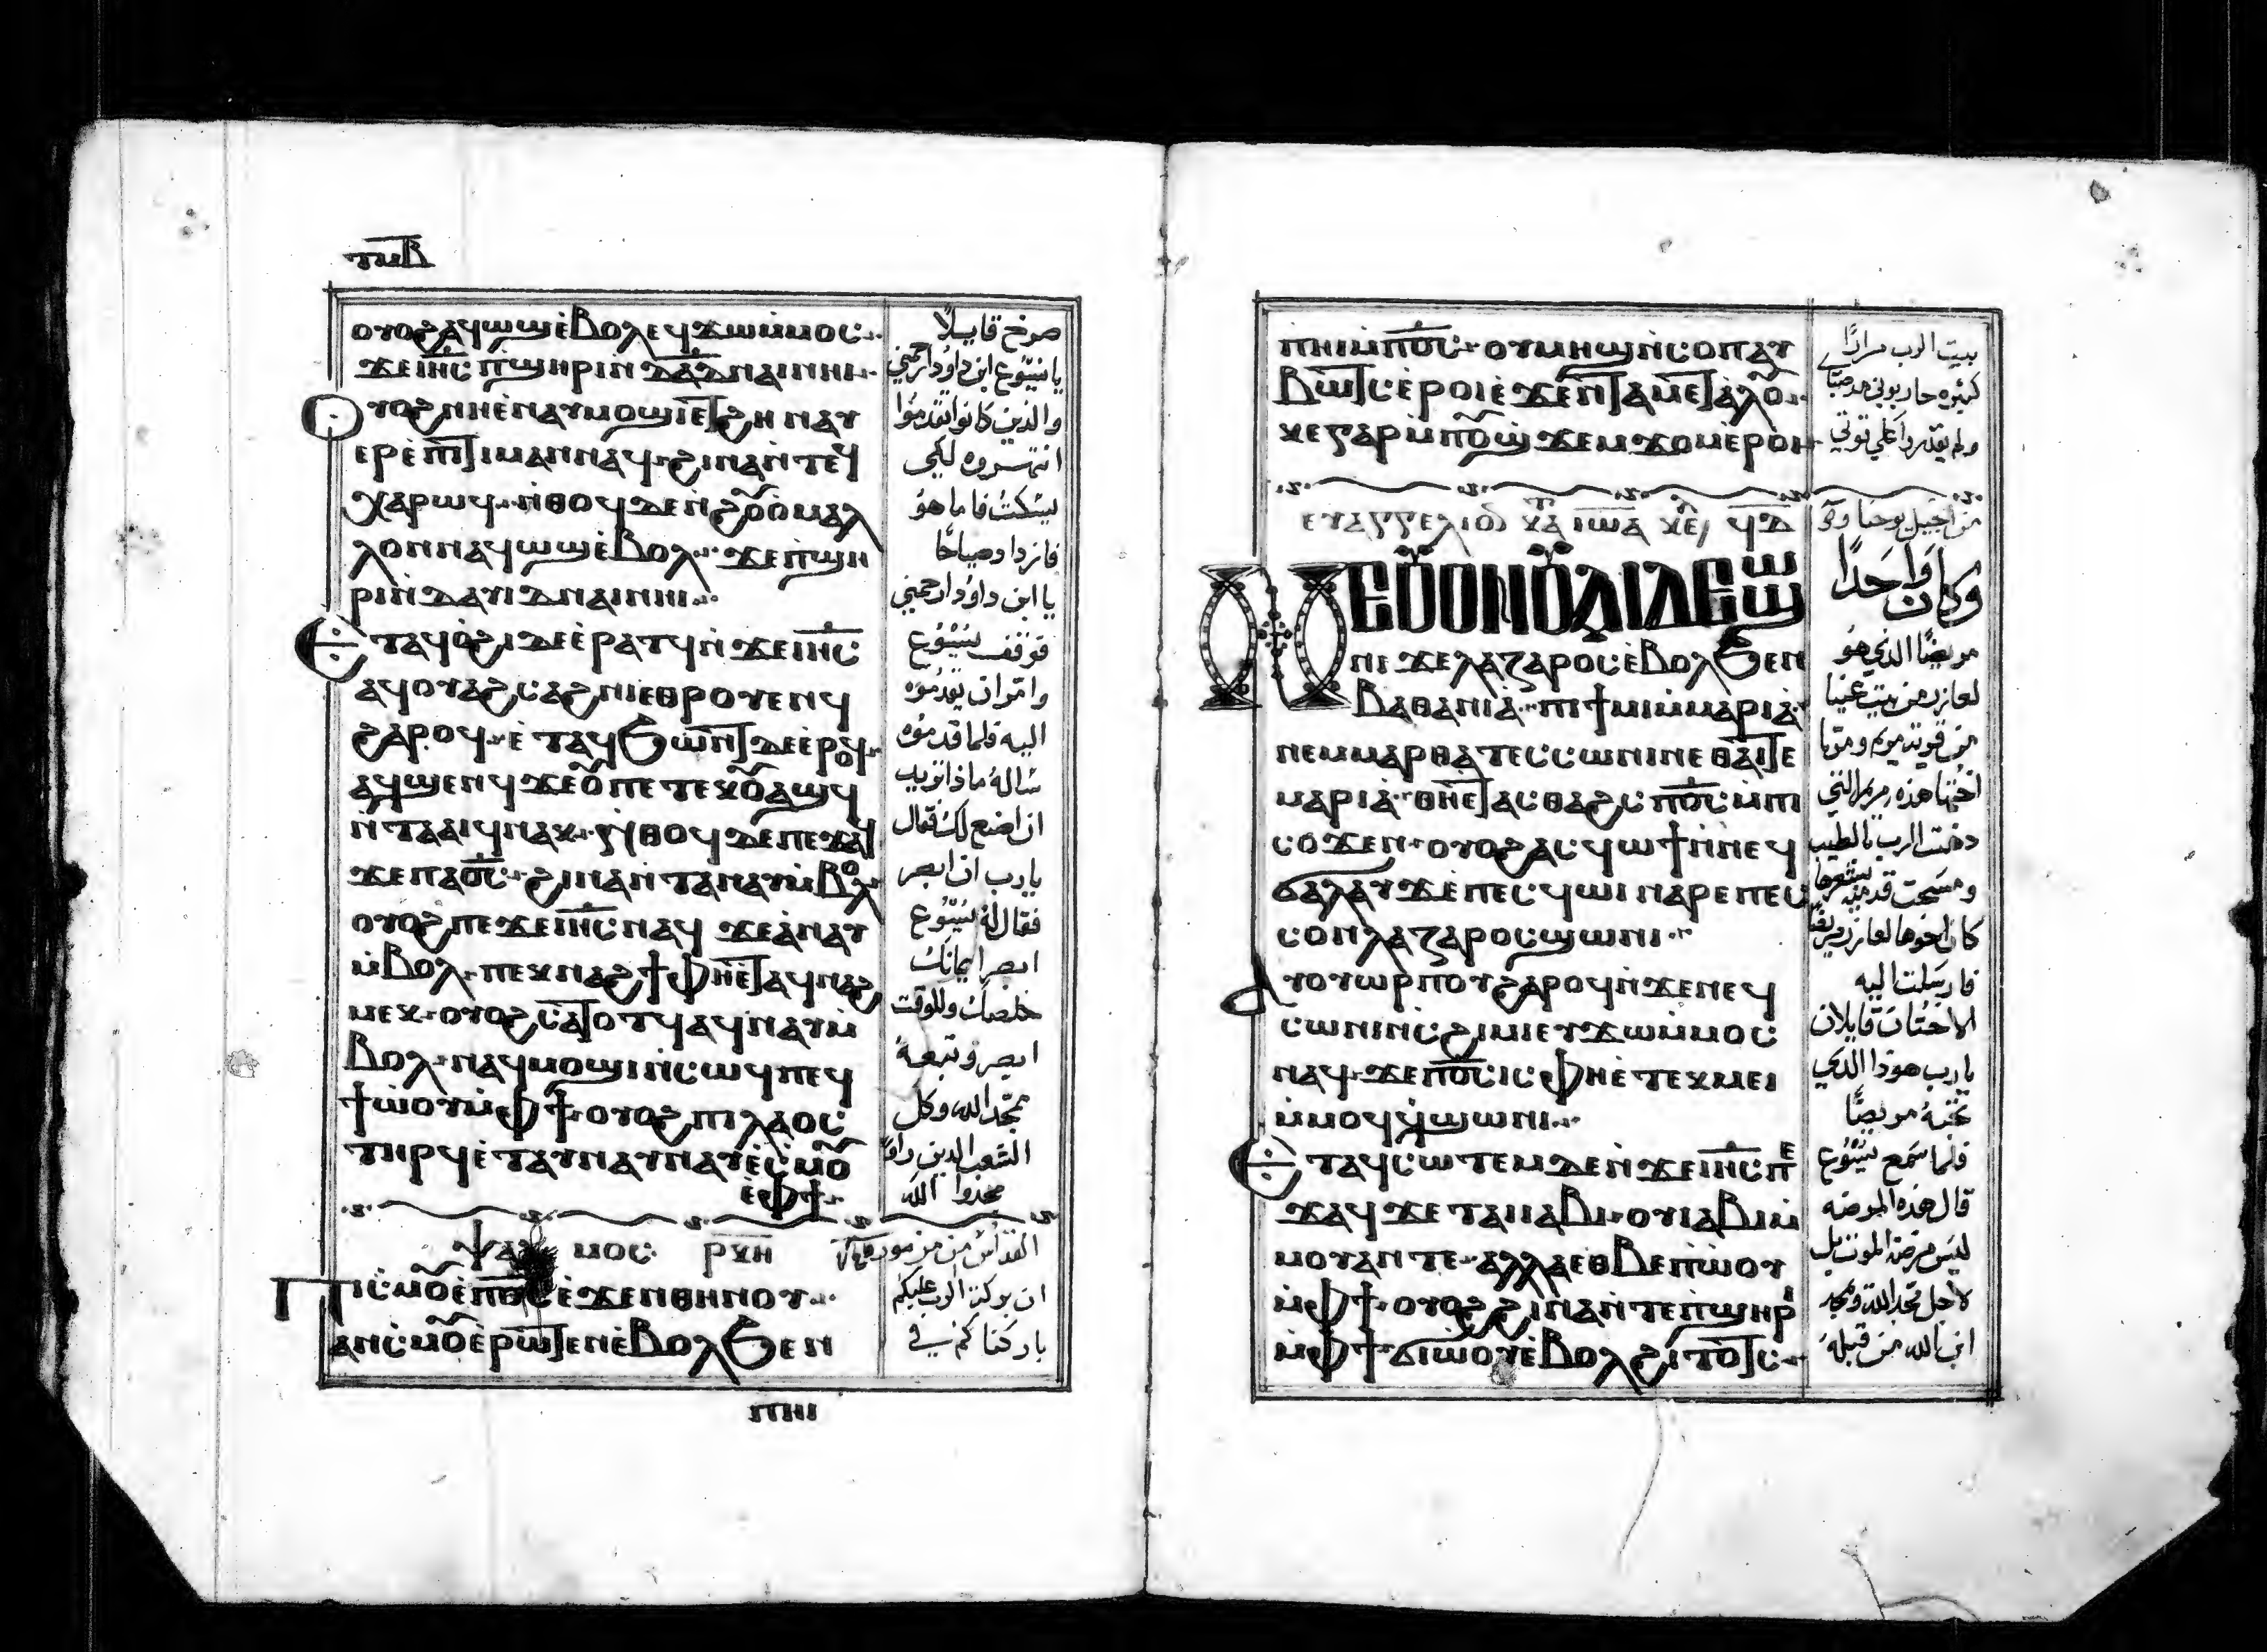 ⲧⲓⲃ
ⲟⲩⲟϩⲁϥⲱϣⲉ̀ⲃⲟⲗⲉϥϫⲱⲙ̀ⲙⲟⲥ
ϫⲉⲓⲏ̅ⲥ̅ ⲡ̀ϣⲏⲣⲓⲛ̀ ⲇⲁ̅ⲇ̅ ⲛⲁⲓⲛⲏⲓ
ⲟⲩⲟϩ ⲛⲏⲉ̀ⲛⲁⲩⲙⲟϣⲓⲉⲧϩⲏ ⲛⲁⲩ
ⲉⲣⲉ̀ⲡⲓⲧⲓⲙⲁⲛⲛⲁϥ ϩⲓⲛⲁⲛ̀ⲧⲉϥ
ⲭⲁⲣⲱϥ ⲛ̀ⲑⲟϥⲇⲉⲛ̀ϩⲟ̃ⲟ̀ⲙⲁⲗ
ⲗⲟⲛⲛⲁϥⲱϣⲉ̀ⲃⲟⲗ ϫⲉⲡ̀ϣⲏ
ⲣⲓⲛ̀ⲇⲁⲩⲓⲇⲛⲁⲓⲛⲏⲓ
ⲉⲧⲁϥⲟ̀ϩⲓⲇⲉⲉ̀ⲣⲁⲧϥⲛ̀ϫⲉⲓⲏ̅ⲥ̅
ⲁϥⲟⲩⲁϩⲥⲁϩⲛⲓⲉⲑⲣⲟⲩⲉⲛϥ
ϩⲁⲣⲟϥ ⲉ̀ⲧⲁϥϧⲱⲛⲧⲇⲉⲉ̀ⲣⲟϥ
ⲁϥϣⲉⲛϥ ϫⲉⲟ̃ⲡⲉⲧⲉⲭⲟ̃ⲁϣϥ
ⲛ̀ⲧⲁⲁⲓϥⲛⲁⲕ ⲛ̀ⲑⲟϥⲇⲉⲡⲉϫⲁϥ
ϫⲉⲡⲁⲟ̅ⲥ̅ ϩⲓⲛⲁⲛ̀ⲧⲁⲛⲁⲩⲙ̀ⲃⲟⲗ
ⲟⲩⲟϩⲡⲉϫⲉⲓⲏ̅ⲥ̅ⲛⲁϥ ϫⲉⲁ̀ⲛⲁⲩ
ⲙ̀ⲃⲟⲗ ⲡⲉⲕⲛⲁϩϯⲫⲏⲉ̀ⲧⲁϥⲛⲁϩ
ⲙⲉⲕ ⲟⲩⲟϩⲥⲁⲧⲟⲧϥⲁϥⲛⲁⲩⲙ̀
ⲃⲟⲗ ⲛⲁϥⲙⲟϣⲓⲛ̀ⲥⲱϥⲡⲉϥ
ϯⲱⲟⲩⲙ̀ⲫϯ ⲟⲩⲟϩⲡⲓⲗⲁⲟⲥ
ⲧⲏⲣϥⲉ̀ⲧⲁⲩⲛⲁⲩⲛⲁⲩⲉ̀ⲥ̀ⲙⲟ̃
ⲉ̀ⲫϯ
ⲯⲁ ⲙⲟⲥ ⲣⲕⲏ
ⲡⲓⲥ̀ⲙⲟ̃ⲉ̀ⲡ̅ⲟ̅ⲥ̅ⲉ̀ϫⲉⲛⲑⲏⲛⲟⲩ
ⲁⲛⲥ̀ⲙⲟ̃ⲉ̀ⲣⲱⲧⲉⲛⲉ̀ⲃⲟⲗϧⲉⲛ
ⲡⲏⲓ
صرخ قايلاً
يا يسوع ابن داود ارحمني
والذين كانوا تقدموا
انتهروه لكي
يسكت فاما هو
فازدا وصياحًا
يا ابن داود ارحمني
فوقف يسوع
وامر ان يقدموه
اليه فلما قدموه
ساله ماذا تريد
ان اصنع لك فقال
يارب ان ابصر
فقال له يسوع
ابصر ايمانك
خلصك وللوقت
ابصر وتبعه
يمجد الله وكل
الشعب الذين راوا
مجدوا الله
القداس من مزمور
ان بركة الرب عليكم
باركناكم في
ⲡⲏⲓⲙ̀ⲡ̅ⲟ̅ⲥ̅ ⲟⲩⲙⲏϣⲛ̀ⲥⲟⲡⲁⲩ
ⲃⲱⲧⲥⲉ̀ⲣⲟⲓⲉ̀ϫⲉⲛⲧⲁⲙⲉⲧⲁ̀ⲗⲟ̃
ⲕⲉⲅⲁⲣⲙ̀ⲡⲟ̃ϣ̀ϫⲉⲙϫⲟⲙⲉ̀ⲣⲟⲓ
ⲉⲩⲁⲅⲅⲉⲗⲓⲟ ⲕⲁ ⲓⲱⲁ ⲕⲉ ϥⲇ
ⲛⲉⲟⲩⲟⲛⲟⲩⲁⲓⲇⲉϣⲱ
ⲛⲓ ϫⲉⲗⲁⲍⲁⲣⲟⲥⲉ̀ⲃⲟⲗϧⲉⲛ
ⲃⲁⲑⲁⲛⲓⲁ̀ ⲡⲓϯⲙⲓⲙ̀ⲙⲁⲣⲓⲁ̀
ⲛⲉⲙⲙⲁⲣⲑⲁⲧⲉⲥⲥⲱⲛⲓⲛⲉⲑⲁⲓⲧⲉ
ⲙⲁⲣⲓⲁ̀ ⲑⲏⲉ̀ⲧⲁⲥⲑⲁϩⲥⲡ̅ⲟ̅ⲥ̅ⲙ̀ⲡⲓ
ⲥⲟϫⲉⲛ ⲟⲩⲟϩⲁⲥϥⲱϯⲛ̀ⲛⲉϥ
ϭⲁⲗⲁⲩϫⲉⲡⲉⲥϥⲱⲓ ⲛⲁⲣⲉⲡⲉⲥ
ⲥⲟⲛⲗⲁⲍⲁⲣⲟⲥϣⲱⲛⲓ
ⲁⲩⲟⲩⲱⲣⲡⲟⲩϩⲁⲣⲟϥⲛ̀ϫⲉⲛⲉϥ
ⲥⲱⲛⲓⲛ̀ⲥϩⲓⲙⲓⲉⲩϫⲱⲙ̀ⲙⲟⲥ
ⲛⲁϥ ϫⲉⲡ̅ⲟ̅ⲥ̅ⲓⲥ ⲫⲏⲉ̀ⲧⲉⲕⲙⲉⲓ
ⲙ̀ⲙⲟϥϥ̀ϣⲱⲛⲓ
ⲉⲧⲁϥⲥⲱⲧⲉⲙⲇⲉⲛ̀ϫⲉⲓⲏ̅ⲥ̅ⲡⲉ
ϫⲁϥϫⲉⲧⲁⲓⲓⲁⲃⲓ ⲟⲩⲓⲁⲃⲓⲙ̀
ⲙⲟⲩⲁⲛⲧⲉ ⲁⲗⲗⲁⲉⲑⲃⲉⲡ̀ⲱⲟⲩ
ⲙ̀ⲫϯ ⲟⲩⲟϩϩⲓⲛⲁⲛ̀ⲧⲉⲡ̀ϣⲏⲣ
ⲙ̀ⲫϯϭⲓⲱⲟⲩⲉ̀ⲃⲟⲗϩⲓⲧⲟⲧⲥ
بيت الرب مرارًا
كثيره حاربوني
ولم يقدروا علي
من انجيل يوحنا
وكان واحدًا
مريضًا الذي هو
لعازر من بيت عنيا
من قرية مريم ومرتا
اختها هذه مريم التي
دهنت الرب بالطيب
ومسحت قدميه بشعرها
كان اخوها لعازر مريضًا
فارسلت اليه
الاختان قايلان
يارب هوذا الذي
تحبه مريضًا
فلما سمع يسوع
قال هذه المرضه
ليس مرضة الموت بل
لاجل مجد الله ويمجد
ابن الله من قبله